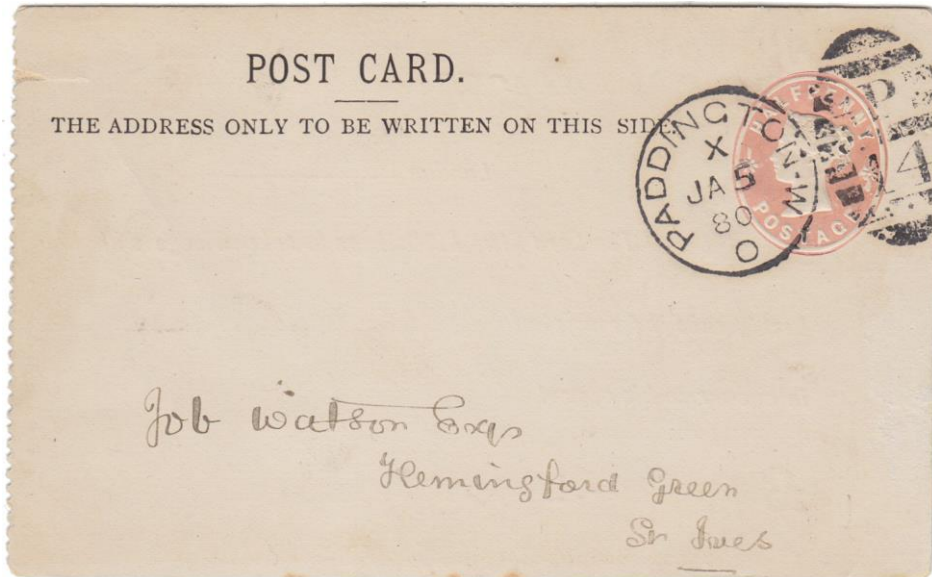 POST CARD.
THE ADDRESS ONLY TO BE WRITTEN ON THIS SIDE.
PADDINGTON · W
X
JA 5
80
O
HALFPENNY
POSTAGE
P
4
Job Watson Esqr
Hemingford Green
St Ives